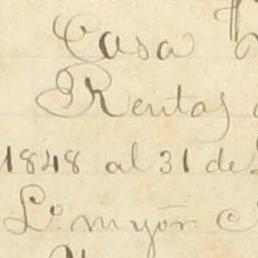 Casa
Rentas
1848 al 31 de
Lo. myor